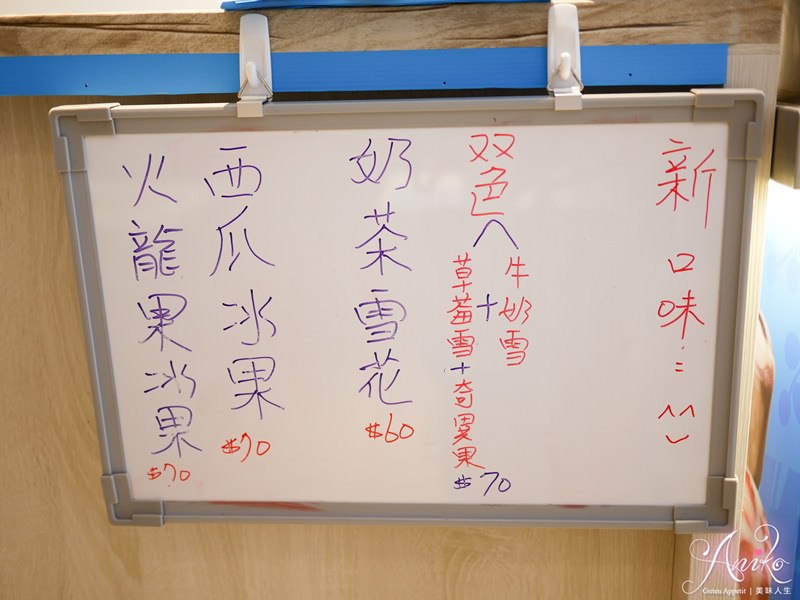 新口味:: ^^
双色︿
牛奶雪
+
草莓雪+奇異果
$70
奶茶雪花
$60
西瓜冰果
$70
火龍果冰果
$70
Aniko
Guten Appetit | 美味人生